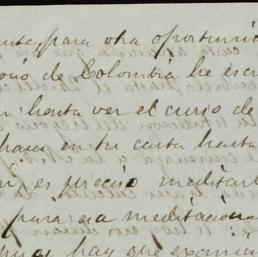 para otra oportuni
de Colombia he esc
hasta ver el curso de
en tu carta hasta
es preciso meditarl
para esa meditacion
hay que examina